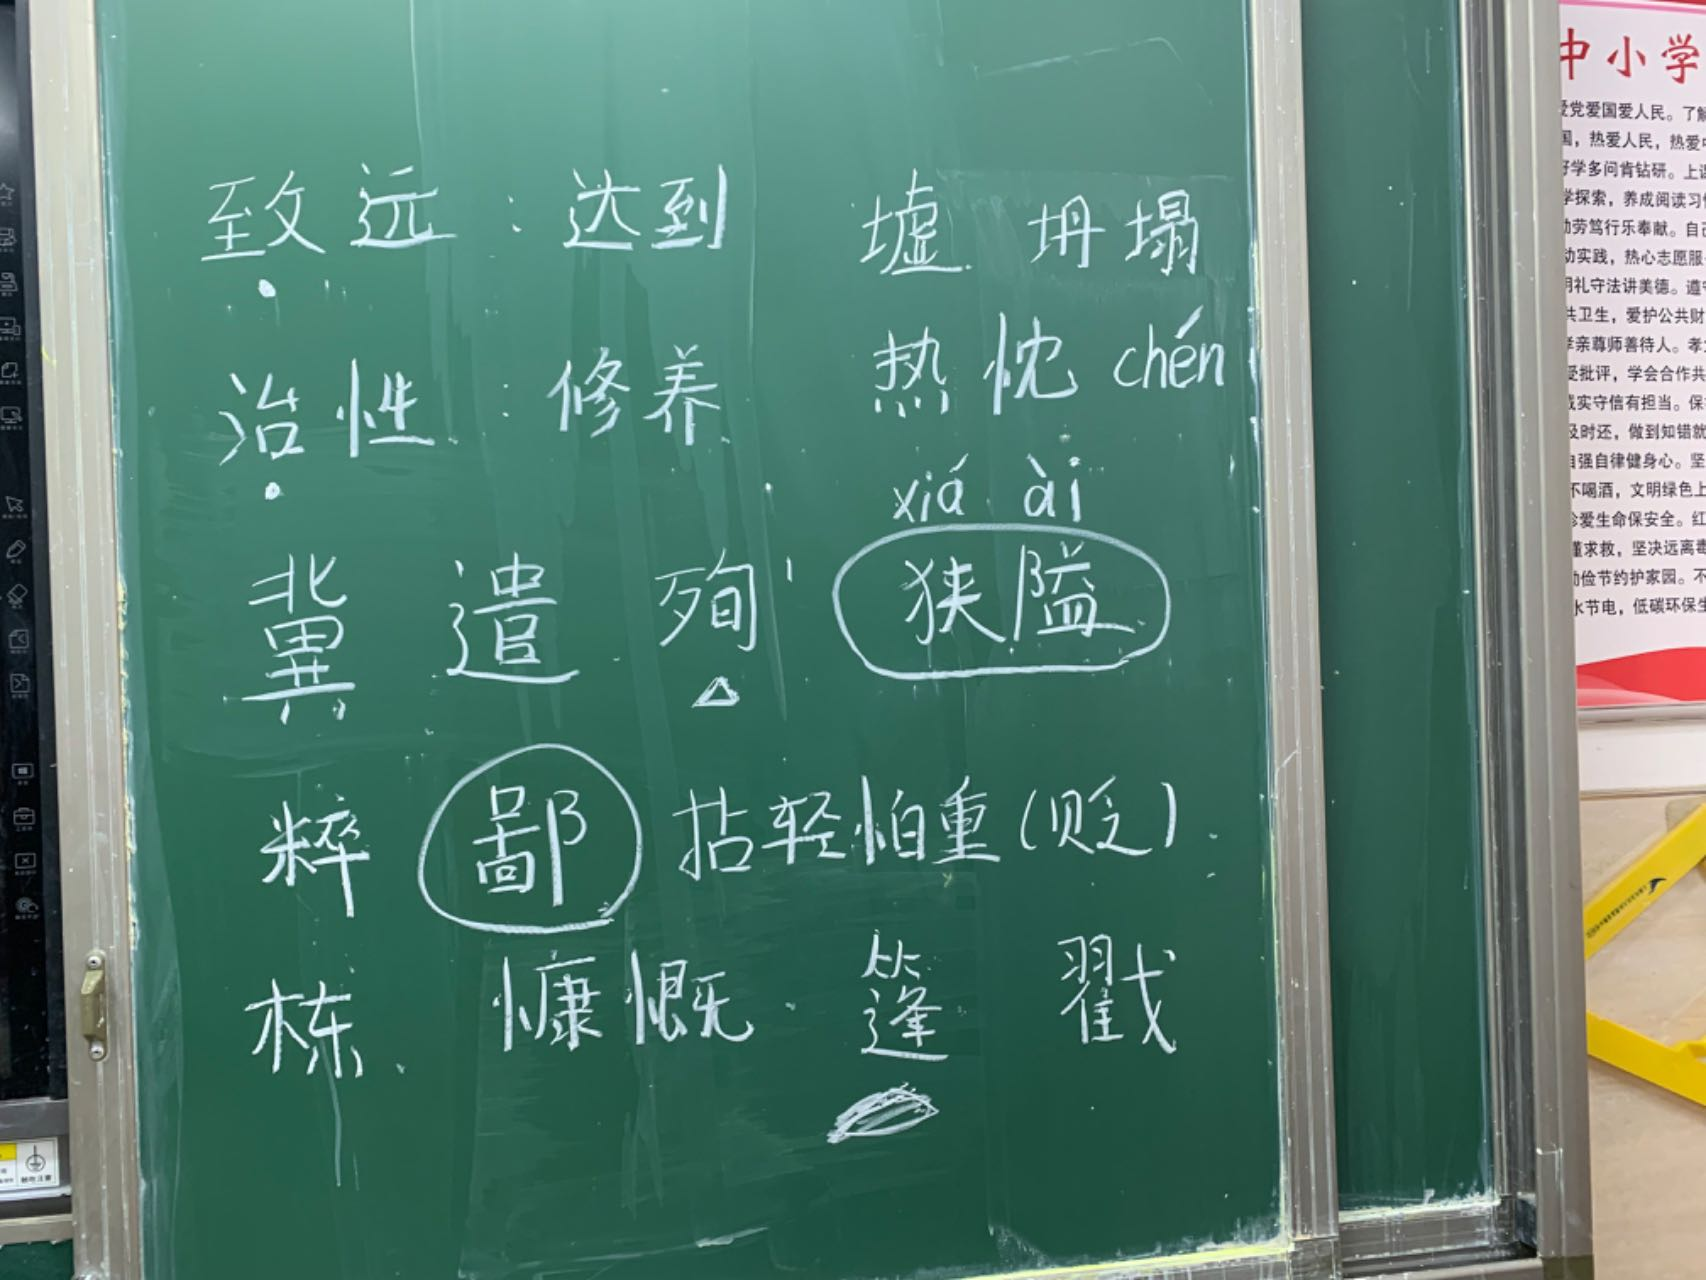 致远：达到 墟 坍塌
冶性：修养 热忱 chén
xiá ài
冀 遣 殉 狭隘
粹 鄙 拈轻怕重（贬）
栋 慷慨 篷 戳
中小学
爱党爱国爱人民。了解
国，热爱人民，热爱中
好学多问肯钻研。上课
学探索，养成阅读习惯
勤劳笃行乐奉献。自己
动实践，热心志愿服务
明礼守法讲美德。遵守
共卫生，爱护公共财
孝亲尊师善待人。孝
受批评，学会合作共
诚实守信有担当。保
及时还，做到知错就
自强自律健身心。坚
不喝酒，文明绿色上
珍爱生命保安全。红
懂求救，坚决远离毒
勤俭节约护家园。不
水节电，低碳环保生